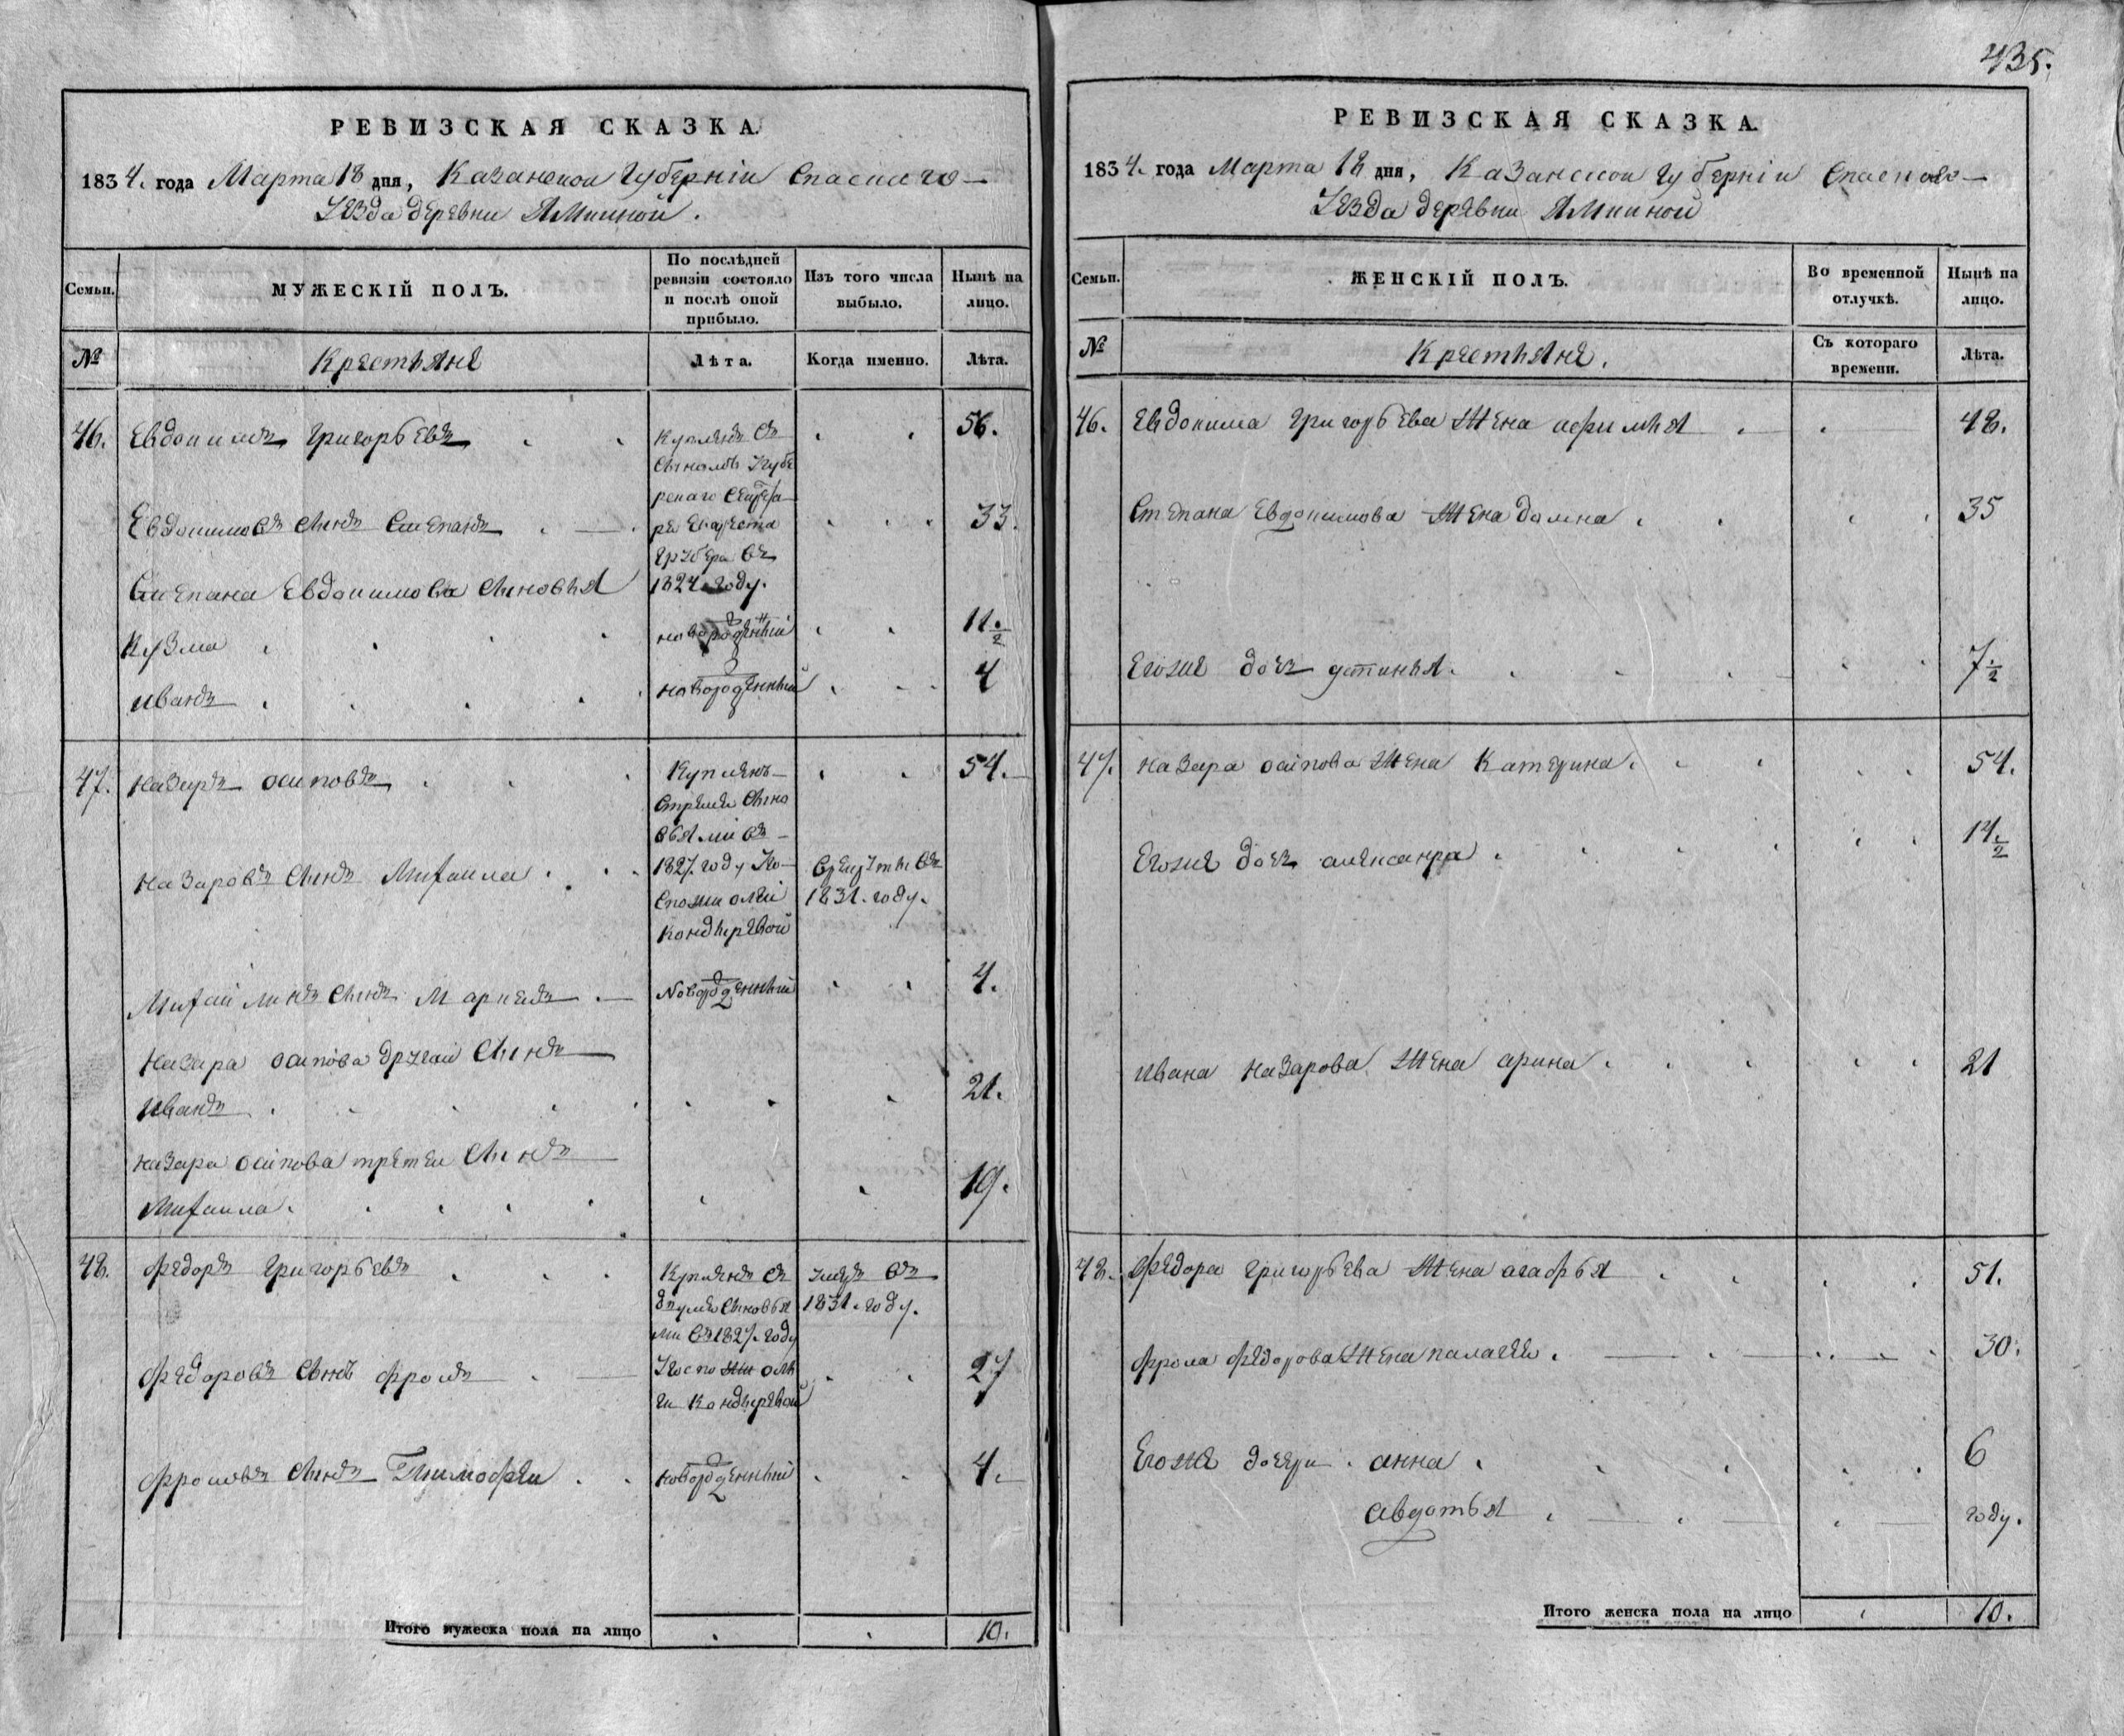 435.
РЕВИЗСКАЯ СКАЗКА.
1834. года Марта 18 дня, Казанской Губерніи Спаскаго
Уезда деревни Амкиной.
Семьи.
МУЖЕСКІЙ ПОЛЪ.
По послѣдней ревизіи состояло и послѣ оной прибыло.
Изъ того числа выбыло.
Нынѣ на лицо.
№
Крестьяне
Лѣта.
Когда именно.
Лѣта.
46. Евдокимъ Григорьевъ
Купленъ съ
56.
сыномъ Угубе
рскаго секрета
Евдокимовъ сынъ Степанъ
33.
ря
в
Степана Евдокимова сыновья
1824 году.
Кузма
новорожденный
11 ½
иванъ
новорожденный
4
47. назаръ осиповъ
Купленъ
54.
стремя сыно
вьями въ
назаровъ сынъ Михаила
1827. году Уго
спожи олги
Кондыревой
въ рекруты въ
1831. году.
Михайлинъ сынъ Маркелъ
новорожденный
4.
назара осипова другой сынъ
иванъ
21.
назара осипова третей сынъ
Михаила
19.
48. Федоръ Григорьевъ
Купленъ съ
двумя сыновья
ми въ 1827. году
Угоспожи ол
ги Кондыревой
умеръ въ
1831. году.
Федоровъ сынъ фролъ
27
фроловъ сынъ Тимофеи
новорожденный
4.
Итого мужеска пола на лицо
10.
РЕВИЗСКАЯ СКАЗКА.
1834. года Марта 18 дня, Казанской Губерніи Спаскаго
Уезда деревни Амкиной
Семьи.
ЖЕНСКІЙ ПОЛЪ.
Во временной отлучкѣ.
Нынѣ на лицо.
№
Крестьяне.
Съ котораго времени.
Лѣта.
46. Евдокима Григорьева жена афимья
48.
Степана Евдокимова жена домна
35
Егоже дочь устинья.
7 ½
47. назара осипова жена Катерина.
54.
Егоже дочь александра
14 ½
ивана назарова жена арина
21
48. федора григорьева жена агафья
51.
фрола федорова жена палагея.
30.
Егоже дочери. анна
6
авдотья
году.
Итого женска пола на лицо
10.